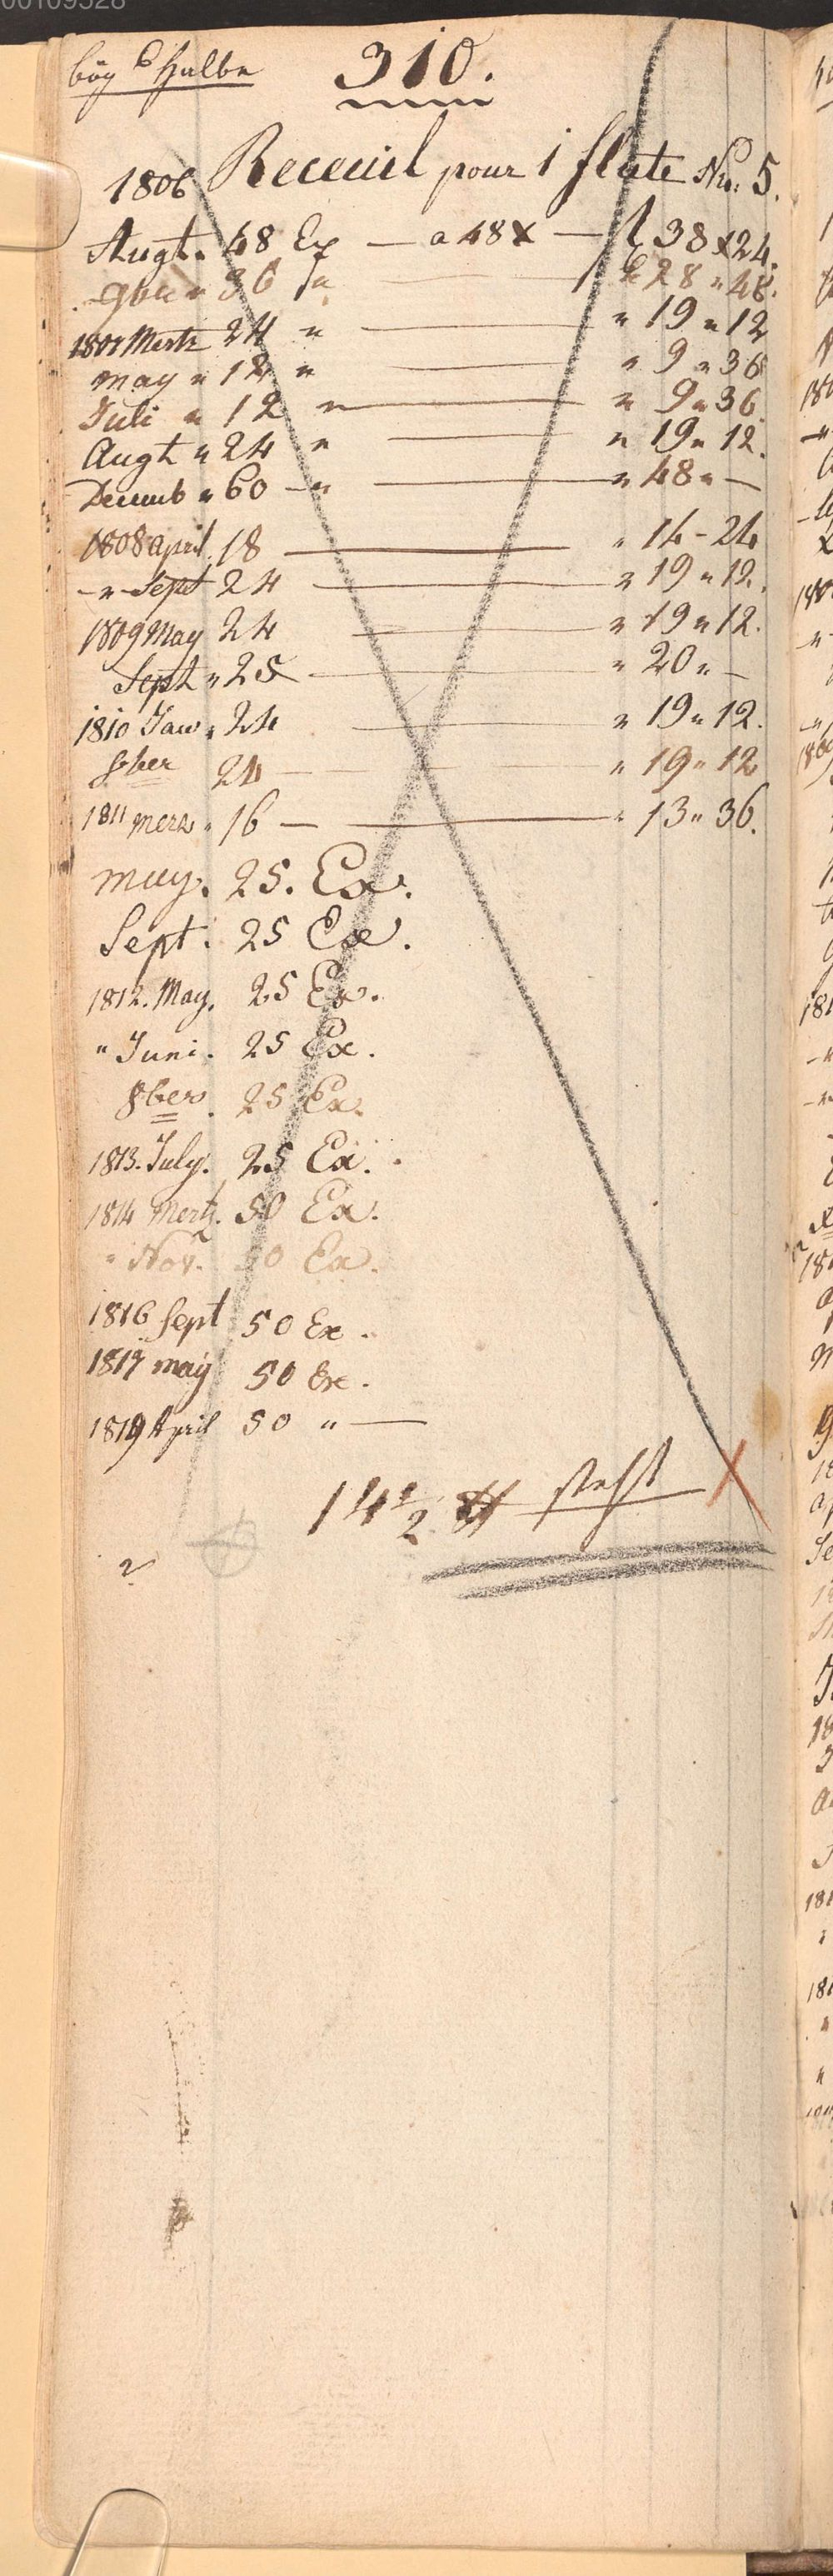 bög 6 halbe 310.
1806 Receuil pour 1 flute No: 5.
Augt. 48 Ex — a 48 x — f 38 x 24.
9ber " 36 " — " 28 " 48.
1807 Mertz 24 " — " 19 " 12
may " 12 " — " 9 " 36
Juli " 12 " — " 9 " 36
Augt " 24 " — " 19 " 12.
Decemb " 60 — " — " 48 " —
1808 april. 18 — " 14 - 24
- " - Sept 24 — " 19 " 12.
1809 May 24 — " 19 " 12.
Sept " 25 — " 20 " —
1810 Jan " 24 — " 19 " 12.
8ber 24 — " 19 " 12
1811 merz " 16 — " 13 " 36.
may. 25. Ex.
Sept. 25 Ex.
1812. May. 25 Ex.
" Juni. 25 Ex.
8ber. 25 Ex.
1813. July. 25 Ex.
1814 Mertz. 50 Ex.
" Nov. 50 Ex.
1816 Sept 50 Ex.
1817 may 50 Ex.
1819 April 50 " —
14 1/2 steht